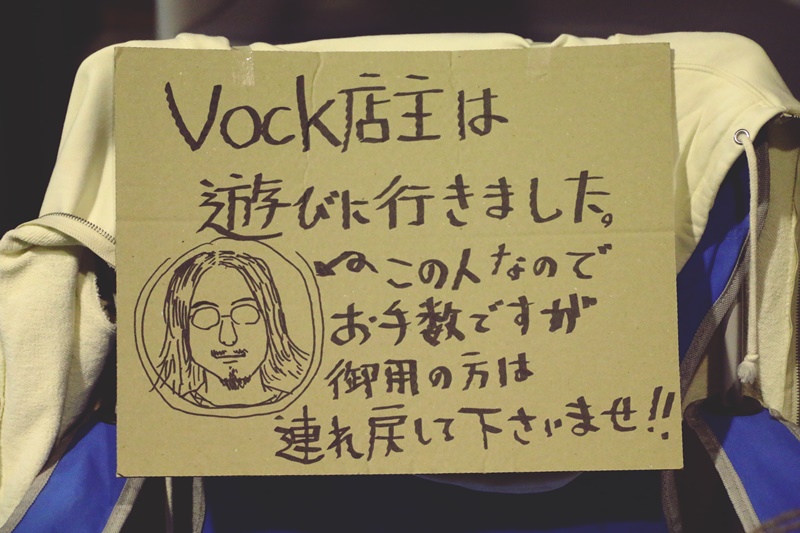 Vock店主は
遊びに行きました。
この人なので
お手数ですが
御用の方は
連れ戻して下さいませ!!